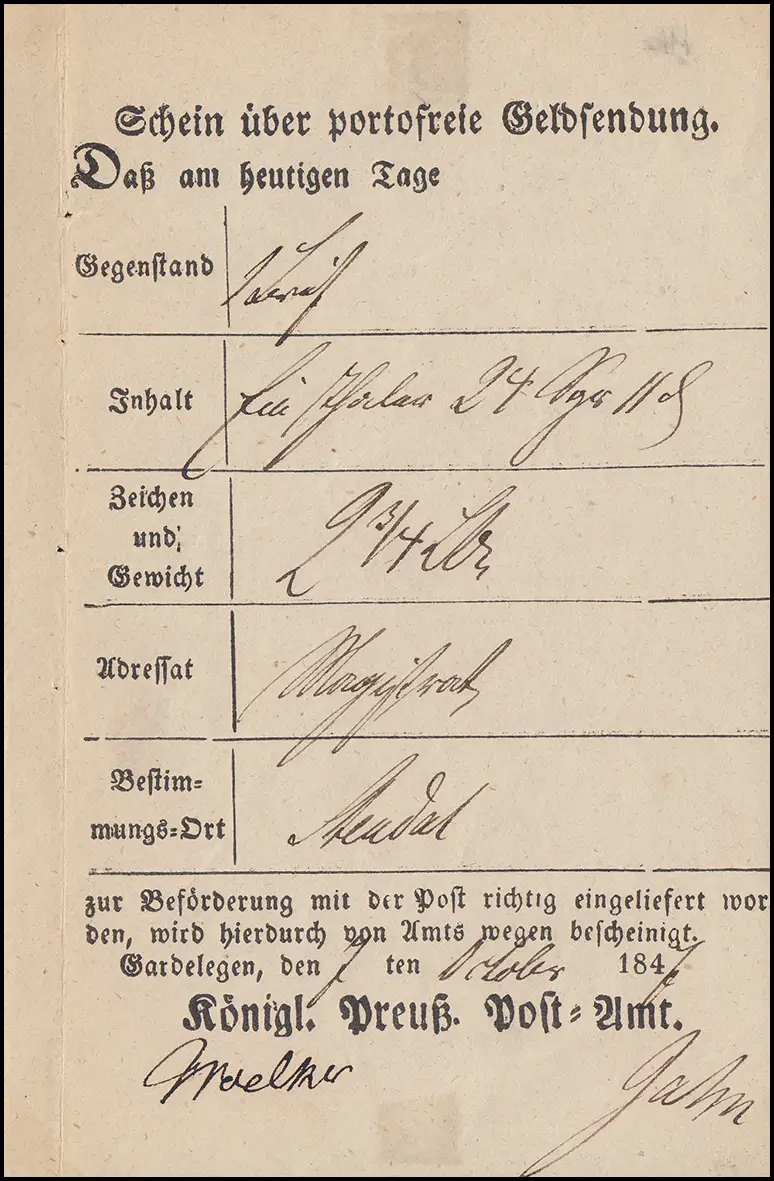 Schein über portofreie Geldsendung.
Daß am heutigen Tage
Gegenstand 1 Brief
Inhalt Ein Thaler 24 Sgr 11 d
Zeichen
und
Gewicht
2 3/4 Lth
Adressat Magistrat
Bestim-
mungs-Ort
Stendal
zur Beförderung mit der Post richtig eingeliefert wor
den, wird hierdurch von Amts wegen bescheinigt.
Gardelegen, den 7 ten October 1847
Königl. Preuß. Post-Amt.